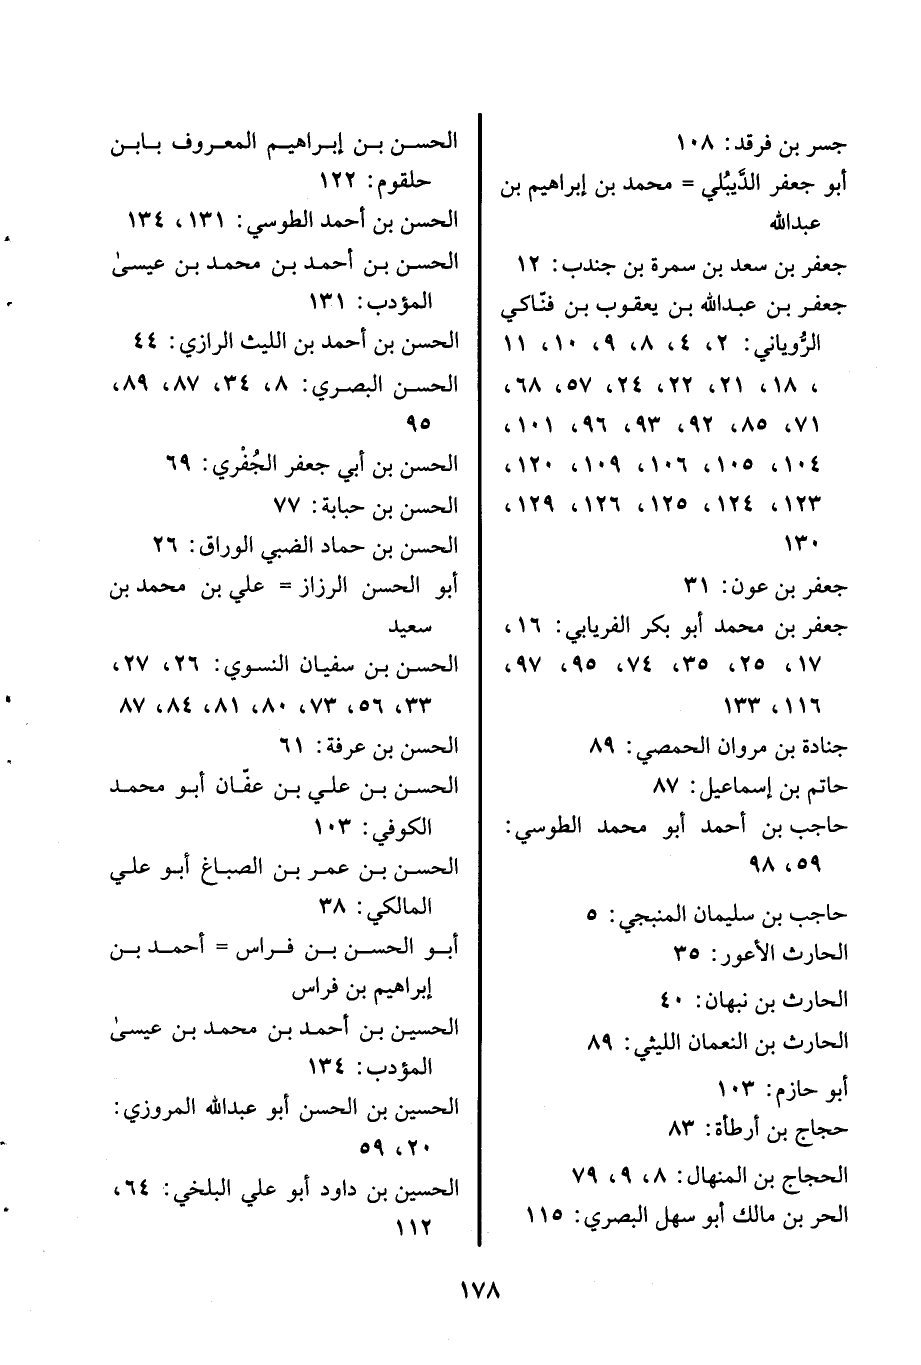 جسر بن فرقد: ١٠٨
أبو جعفر الدَّيبُلي = محمد بن إبراهيم بن
عبدالله
جعفر بن سعد بن سمرة بن جندب: ١٢
جعفر بن عبدالله بن يعقوب بن فنّاكي
الرُّوياني: ٢، ٤، ٨، ٩، ١٠، ١١
، ١٨، ٢١، ٢٢، ٢٤، ٥٧، ٦٨،
٧١، ٨٥، ٩٢، ٩٣، ٩٦، ١٠١،
١٠٤، ١٠٥، ١٠٦، ١٠٩، ١٢٠،
١٢٣، ١٢٤، ١٢٥، ١٢٦، ١٢٩،
١٣٠
جعفر بن عون: ٣١
جعفر بن محمد أبو بكر الفريابي: ١٦،
١٧، ٢٥، ٣٥، ٧٤، ٩٥، ٩٧،
١١٦، ١٣٣
جنادة بن مروان الحمصي: ٨٩
حاتم بن إسماعيل: ٨٧
حاجب بن أحمد أبو محمد الطوسي:
٥٩، ٩٨
حاجب بن سليمان المنبجي: ٥
الحارث الأعور: ٣٥
الحارث بن نبهان: ٤٠
الحارث بن النعمان الليثي: ٨٩
أبو حازم: ١٠٣
حجاج بن أرطأة: ٨٣
الحجاج بن المنهال: ٨، ٩، ٧٩
الحر بن مالك أبو سهل البصري: ١١٥
الحسن بن إبراهيم المعروف بابن
حلقوم: ١٢٢
الحسن بن أحمد الطوسي: ١٣١، ١٣٤
الحسن بن أحمد بن محمد بن عيسىٰ
المؤدب: ١٣١
الحسن بن أحمد بن الليث الرازي: ٤٤
الحسن البصري: ٨، ٣٤، ٨٧، ٨٩،
٩٥
الحسن بن أبي جعفر الجُفْري: ٦٩
الحسن بن حبابة: ٧٧
الحسن بن حماد الضبي الوراق: ٢٦
أبو الحسن الرزاز = علي بن محمد بن
سعيد
الحسن بن سفيان النسوي: ٢٦، ٢٧،
٣٣، ٥٦، ٧٣، ٨٠، ٨١، ٨٤، ٨٧
الحسن بن عرفة: ٦١
الحسن بن علي بن عفّان أبو محمد
الكوفي: ١٠٣
الحسن بن عمر بن الصباغ أبو علي
المالكي: ٣٨
أبو الحسن بن فراس = أحمد بن
إبراهيم بن فراس
الحسين بن أحمد بن محمد بن عيسىٰ
المؤدب: ١٣٤
الحسين بن الحسن أبو عبدالله المروزي:
٢٠، ٥٩
الحسين بن داود أبو علي البلخي: ٦٤،
١١٢
١٧٨